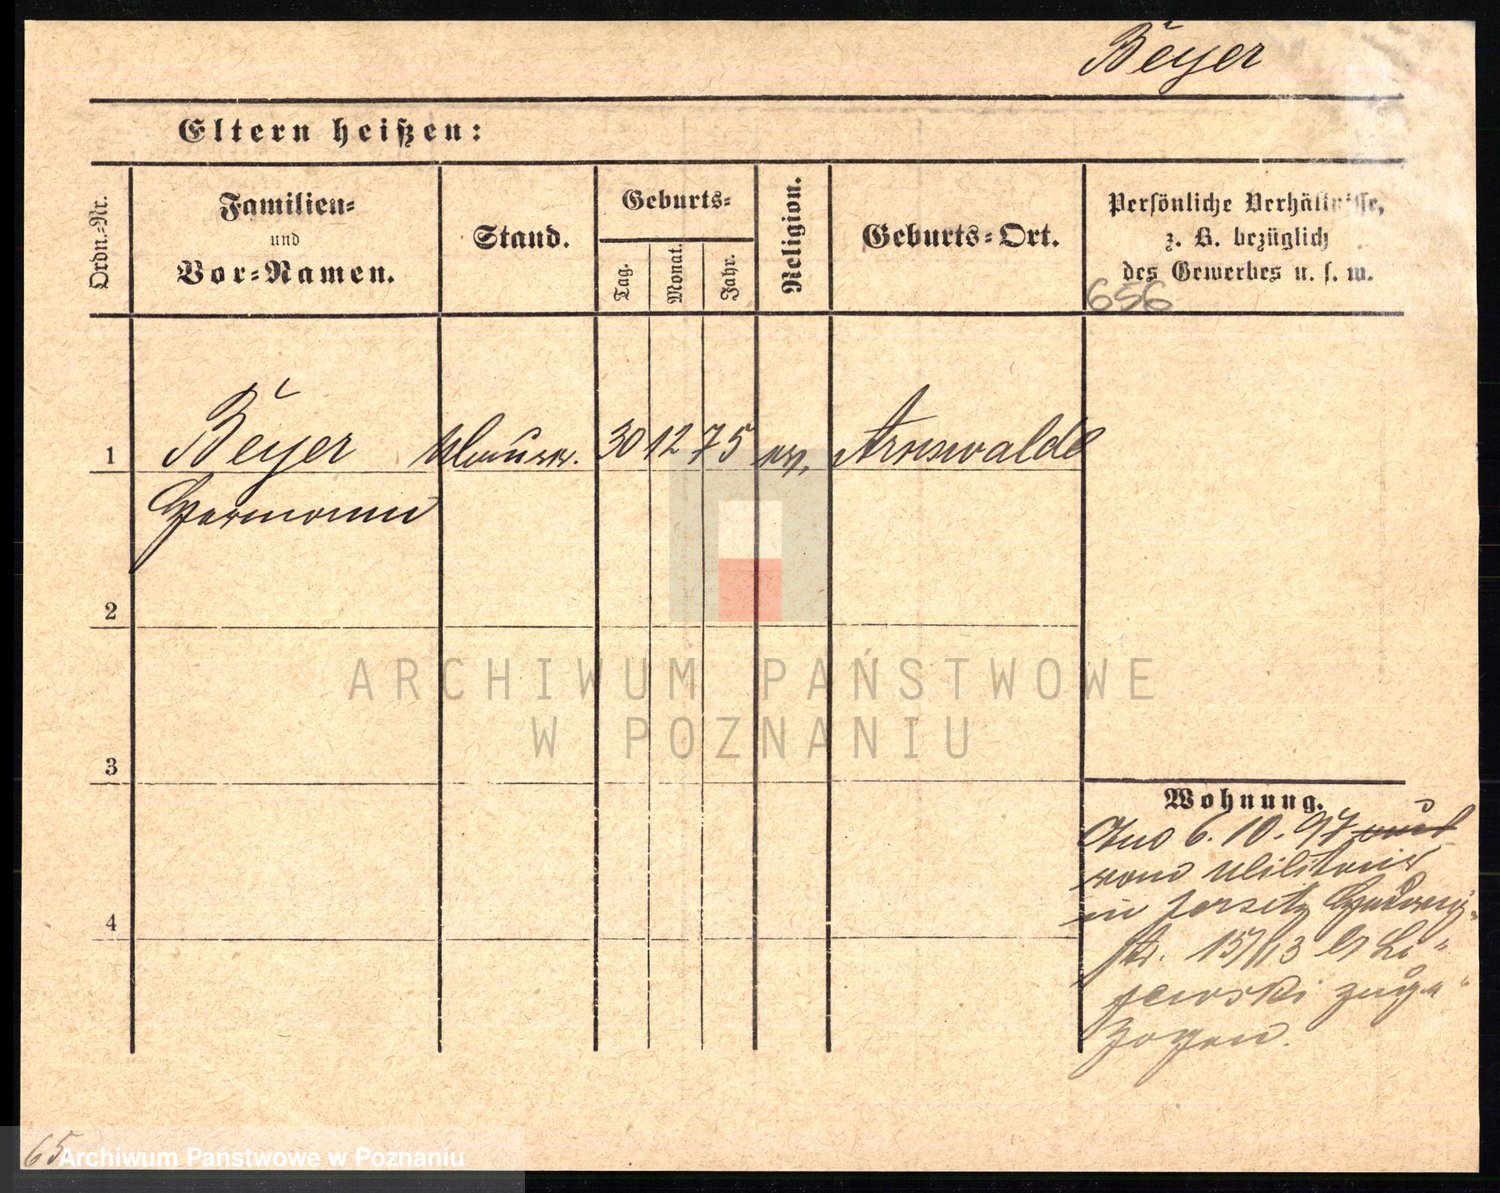 Beyer
Eltern heißen:
Ordn.-Nr.
Familien-
und
Vor-Namen.
Stand.
Geburts-
Tag.
Monat.
Jahr.
Religion.
Geburts-Ort.
Persönliche Verhältnisse,
z. B. bezüglich
des Gewerbes u. s. w.
656
1
Beyer Maurer. 30 12 75 ev. Arnswalde
Hermann
2
3
4
Wohnung.
6. 10. 97
vom Militair
in Jersitz Hedwig-
str. 15/13 b/
zuge-
zogen.
65
ARCHIWUM PAŃSTWOWE
W POZNANIU
Archiwum Państwowe w Poznaniu